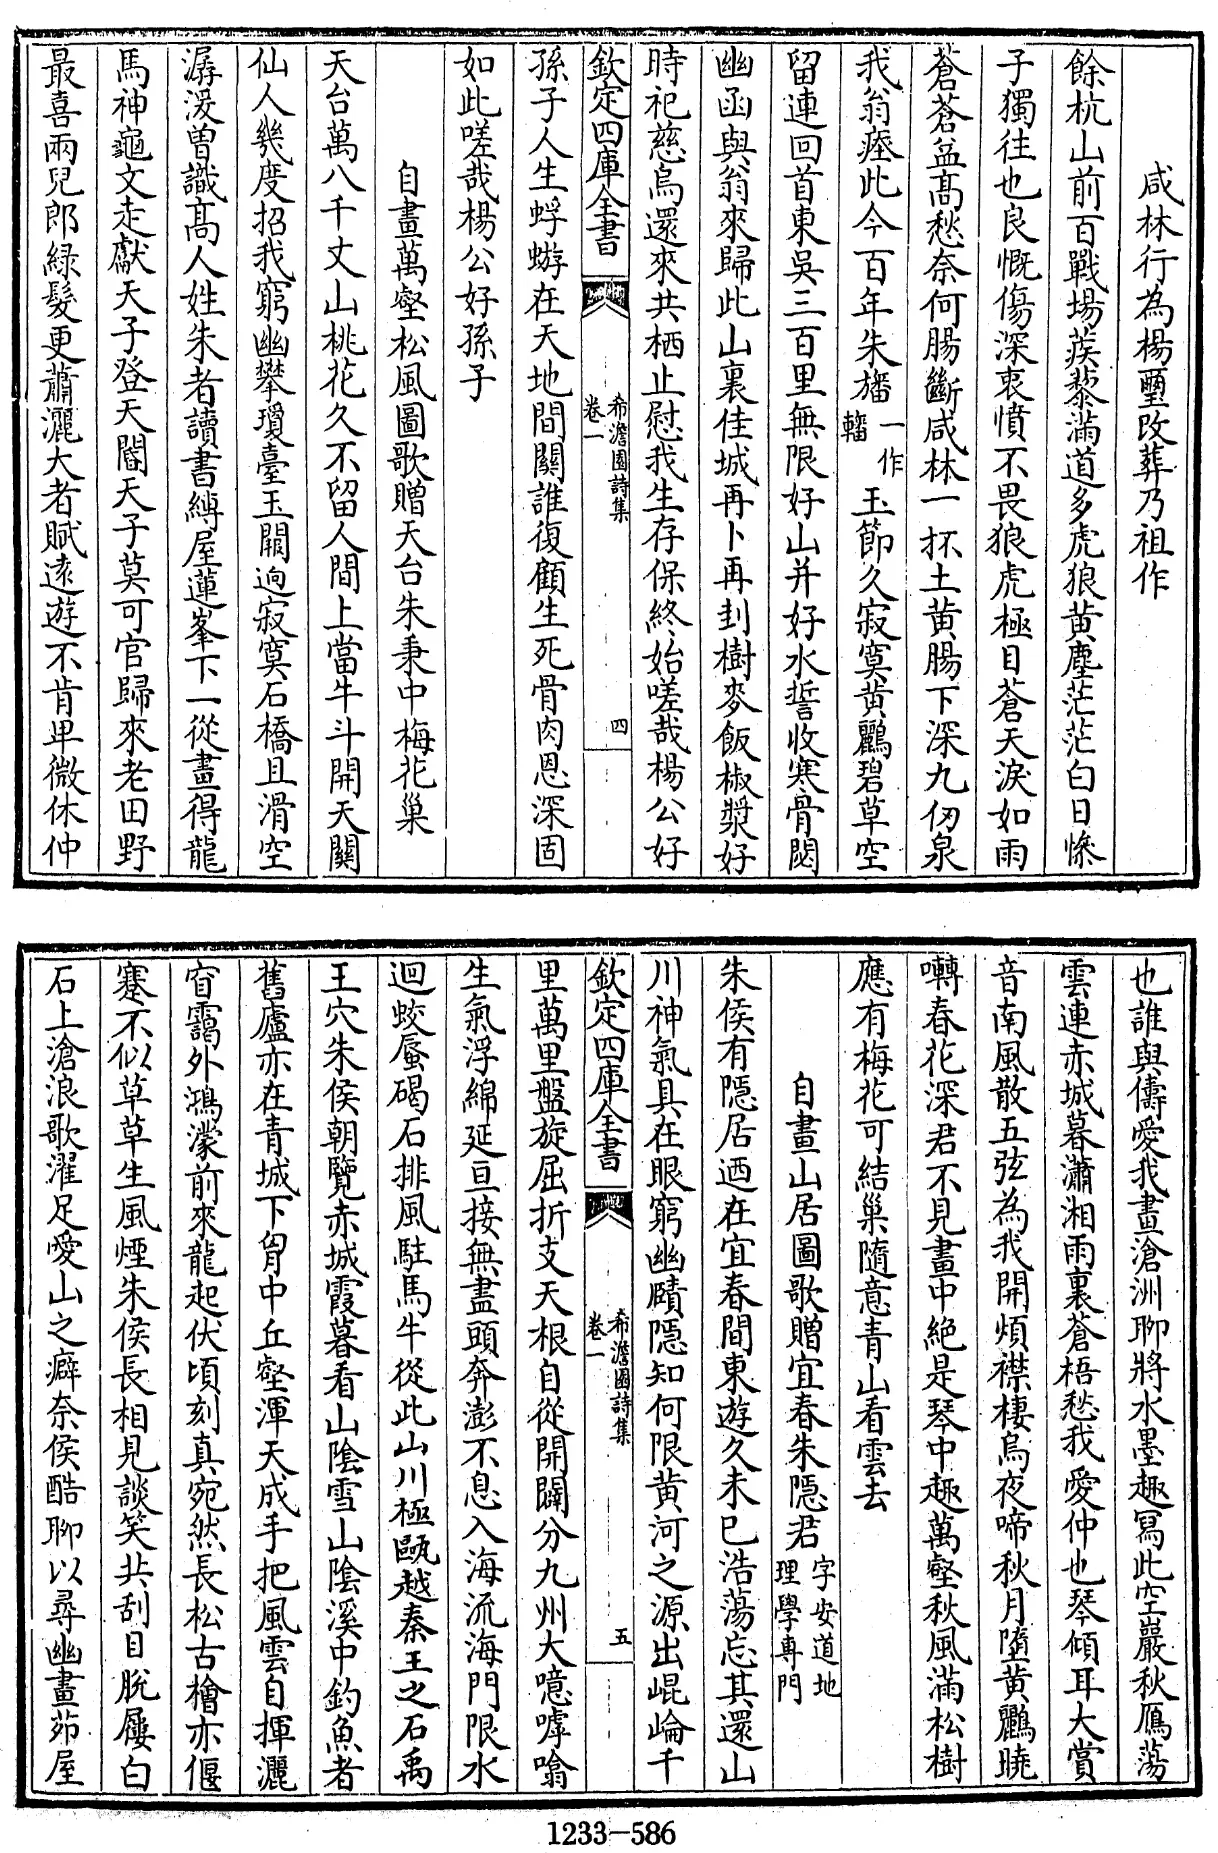 咸林行為楊璽改葬乃祖作
餘杭山前百戰場蒺藜滿道多虎狼黄塵茫茫白日慘
子獨往也良慨傷深衷憤不畏狼虎極目蒼天淚如雨
蒼蒼益髙愁奈何腸斷咸林一抔土黄腸下深九仞泉
我翁瘞此今百年朱旛一作轓玉節久寂寞黄鸝碧草空
留連回首東吳三百里無限好山并好水誓收寒骨閟
幽函與翁來歸此山裏佳城再卜再封樹麥飯椒漿好
時祀慈烏還來共栖止慰我生存保終始嗟哉楊公好
欽定四庫全書
希澹園詩集
卷一
四
孫子人生蜉蝣在天地間關誰復顧生死骨肉恩深固
如此嗟哉楊公好孫子
自畫萬壑松風圖歌贈天台朱秉中梅花巢
天台萬八千丈山桃花久不留人間上當牛斗開天關
仙人幾度招我窮幽攀瓊臺玉闕逈寂寞石橋且滑空
潺湲曽識髙人姓朱者讀書縛屋蓮峯下一從畫得龍
馬神龜文走獻天子登天閽天子莫可官歸來老田野
最喜兩兒郎緑髮更蕭灑大者賦逺遊不肯卑微休仲
也誰與儔愛我畫滄洲聊將水墨趣寫此空巖秋鴈蕩
雲連赤城暮瀟湘雨裏蒼梧愁我愛仲也琴傾耳大賞
音南風散五弦為我開煩襟棲烏夜啼秋月墮黄鸝曉
囀春花深君不見畫中絶是琴中趣萬壑秋風滿松樹
應有梅花可結巢隨意青山看雲去
自畫山居圖歌贈宜春朱隱君字安道地理學専門
朱侯有隱居迺在宜春間東遊久未已浩蕩忘其還山
川神氣具在眼窮幽賾隱知何限黄河之源出崐崘千
欽定四庫全書
希澹園詩集
卷一
五
里萬里盤旋屈折支天根自從開闢分九州大噫嘑噏
生氣浮綿延亘接無盡頭奔澎不息入海流海門限水
迴蛟蜃碣石排風駐馬牛從此山川極甌越秦王之石禹
王穴朱侯朝覽赤城霞暮看山隂雪山隂溪中釣魚者
舊廬亦在青城下胷中丘壑渾天成手把風雲自揮灑
窅靄外鴻濛前來龍起伏頃刻真宛然長松古檜亦偃
蹇不似草草生風煙朱侯長相見談笑共刮目脫屨白
石上滄浪歌濯足噯山之癖奈侯酷聊以尋幽畫茆屋
1233-586